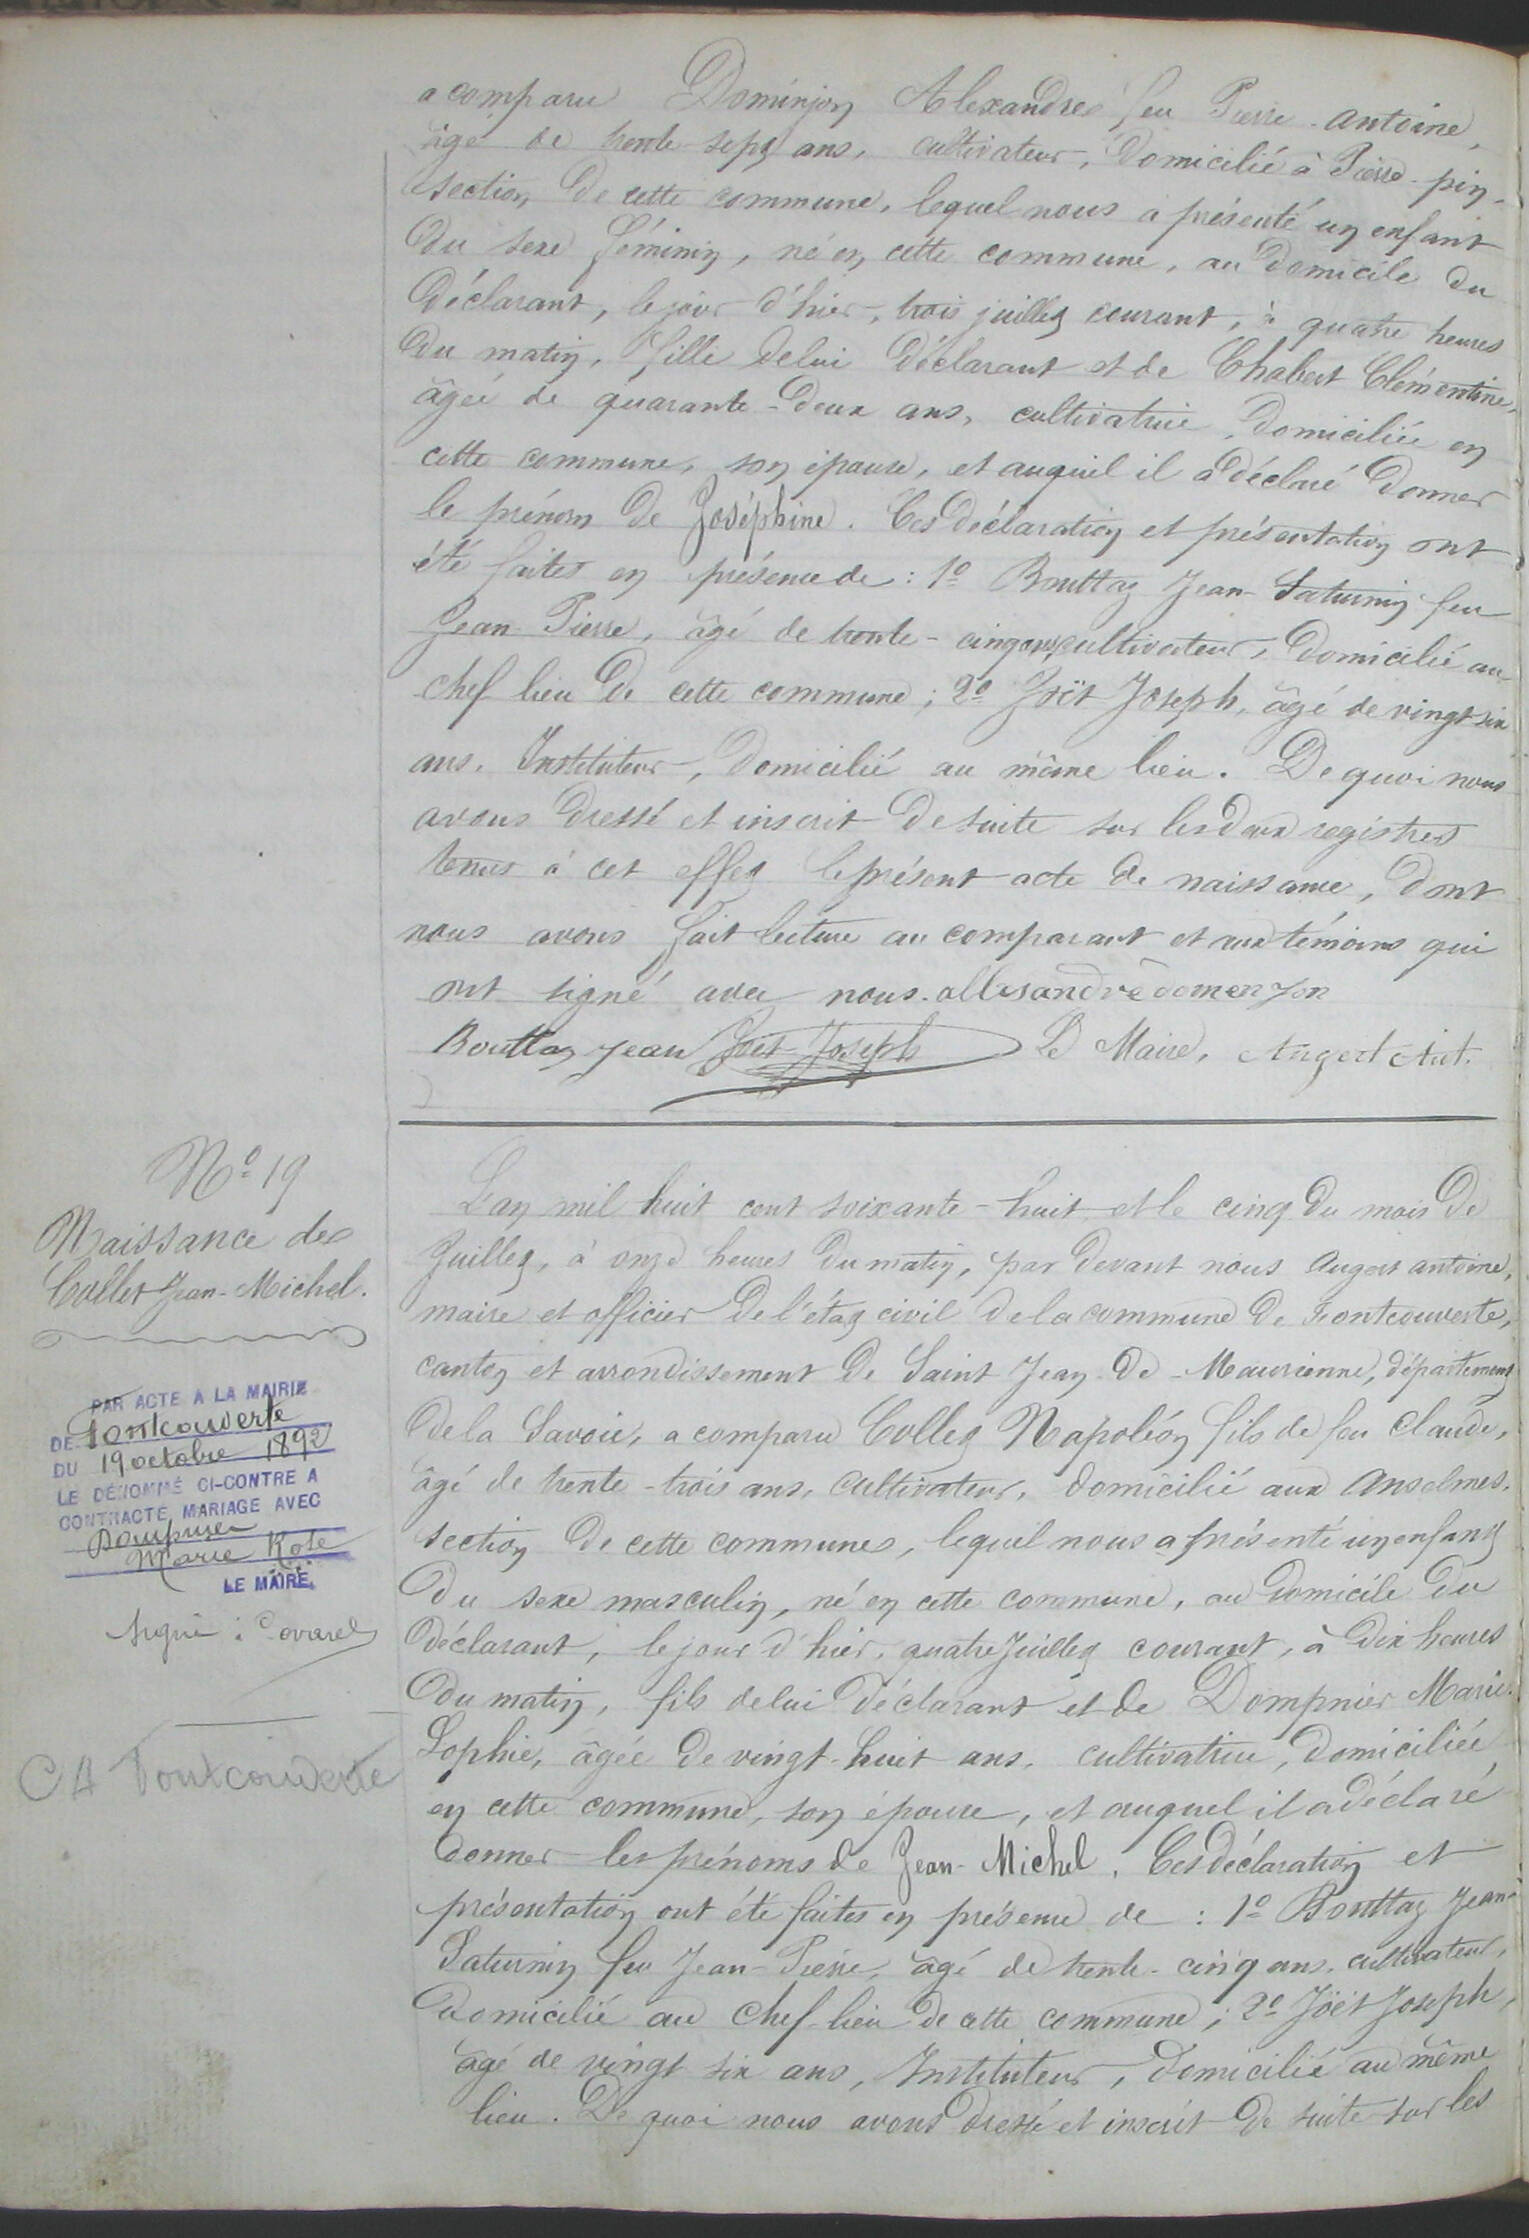 a comparu Dominjon Alexandre feu Pierre-Antoine,
âgé de trente-sept ans, cultivateur, domicilié à Pierre-pin,
section de cette commune, lequel nous a présenté un enfant
du sexe féminin, né en cette commune, au domicile du
déclarant, le jour d'hier, trois juillet courant, à quatre heures
du matin, fille de lui déclarant et de Chabert Clémentine,
âgée de quarante-deux ans, cultivatrice, domiciliée en
cette commune, son épouse, et auquel il a déclaré donner
le prénom de Joséphine. Ces déclaration et présentation ont
été faites en présence de : 1º Bouttaz Jean-Saturnin feu
Jean-Pierre, âgé de trente-cinq ans, cultivateur, domicilié au
chef lieu de cette commune ; 2º Joët Joseph, âgé de vingt six
ans, Instituteur, domicilié au même lieu. De quoi nous
avons dressé et inscrit de suite sur les deux registres
tenus à cet effet le présent acte de naissance, dont
nous avons fait lecture au comparant et aux témoins qui
ont signé avec nous. allesandrê domenjon
Bouttaz jean Joët Joseph Le Maire, Augert Ant.
Nº 19
Naissance de
Collet Jean-Michel.
PAR ACTE A LA MAIRIE
DE Fontcouverte
DU 19 octobre 1892
LE DÉNOMMÉ CI-CONTRE A
CONTRACTÉ MARIAGE AVEC
Dompnier
Marie Rose
LE MAIRE,
Signé : Covarel
CA Fontcouverte
L'an mil huit cent soixante-huit et le cinq du mois de
Juillet, à onze heures du matin, par devant nous Augert antoine,
maire et officier de l'état civil de la commune de Fontcouverte,
canton et arrondissement de Saint Jean-de-Maurienne, département
de la Savoie, a comparu Collet Napoléon fils de feu Claude,
âgé de trente-trois ans, cultivateur, domicilié aux Anselmes,
section de cette commune, lequel nous a présenté un enfant
du sexe masculin, né en cette commune, au domicile du
déclarant, le jour d'hier, quatre Juillet courant, à dix heures
du matin, fils de lui déclarant et de Dompnier Marie-
Sophie, âgée de vingt-huit ans, cultivatrice, domiciliée
en cette commune, son épouse, et auquel il a déclaré
donner les prénoms de Jean-Michel. Ces déclaration et
présentation ont été faites en présence de : 1º Bouttaz Jean-
Saturnin feu Jean-Pierre, âgé de trente-cinq ans, cultivateur,
domicilié au chef-lieu de cette commune ; 2º Joët Joseph,
âgé de vingt six ans, Instituteur, domicilié au même
lieu. De quoi nous avons dressé et inscrit de suite sur les